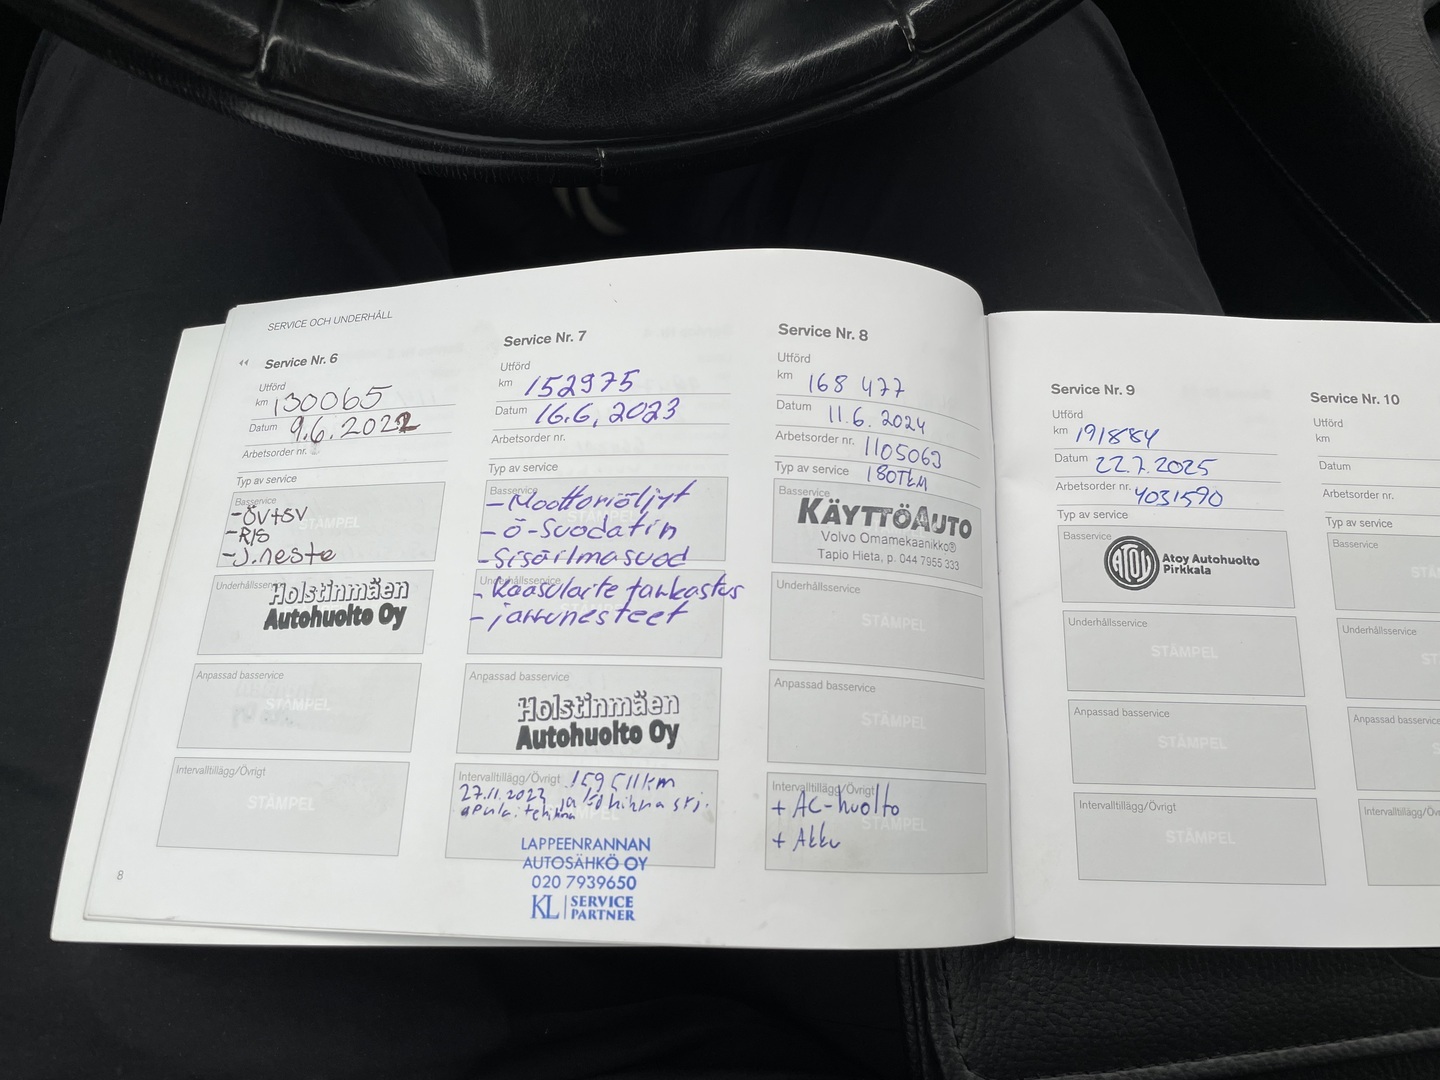 SERVICE OCH UNDERHÅLL
Service Nr. 6
Utförd
km 130065
Datum 9.6.2022
Arbetsorder nr.
Typ av service
Basservice
STÄMPEL
-ÖV+SV
-R/S
-J.neste
Underhållsservice
Holstinmäen
Autohuolto Oy
Anpassad basservice
STÄMPEL
Intervalltillägg/Övrigt
STÄMPEL
8
Service Nr. 7
Utförd
km 152975
Datum 16.6.2023
Arbetsorder nr.
Typ av service
Basservice
- Moottoriöljyt
- Ö-Suodatin
- Sisäilmasuod
Underhållsservice
- Kaasulaite tarkastus
- jarrunesteet
Anpassad basservice
Holstinmäen
Autohuolto Oy
Intervalltillägg/Övrigt 159511km
27.11.2023
LAPPEENRANNAN
AUTOSÄHKÖ OY
020 7939650
KL SERVICE
PARTNER
Service Nr. 8
Utförd
km 168 477
Datum 11.6.2024
Arbetsorder nr. 1105063
Typ av service 180TKM
Basservice
KÄYTTÖAUTO
Volvo Omamekaanikko®
Tapio Hieta, p. 044 7955 333
Underhållsservice
STÄMPEL
Anpassad basservice
STÄMPEL
Intervalltillägg/Övrigt
STÄMPEL
+ AC-huolto
+ Akku
Service Nr. 9
Utförd
km 191884
Datum 22.7.2025
Arbetsorder nr. 4031590
Typ av service
Basservice
ATOY Atoy Autohuolto
Pirkkala
Underhållsservice
STÄMPEL
Anpassad basservice
STÄMPEL
Intervalltillägg/Övrigt
STÄMPEL
Service Nr. 10
Utförd
km
Datum
Arbetsorder nr.
Typ av service
Basservice
STÄ
Underhållsservice
ST
Anpassad basservice
Intervalltillägg/Öv